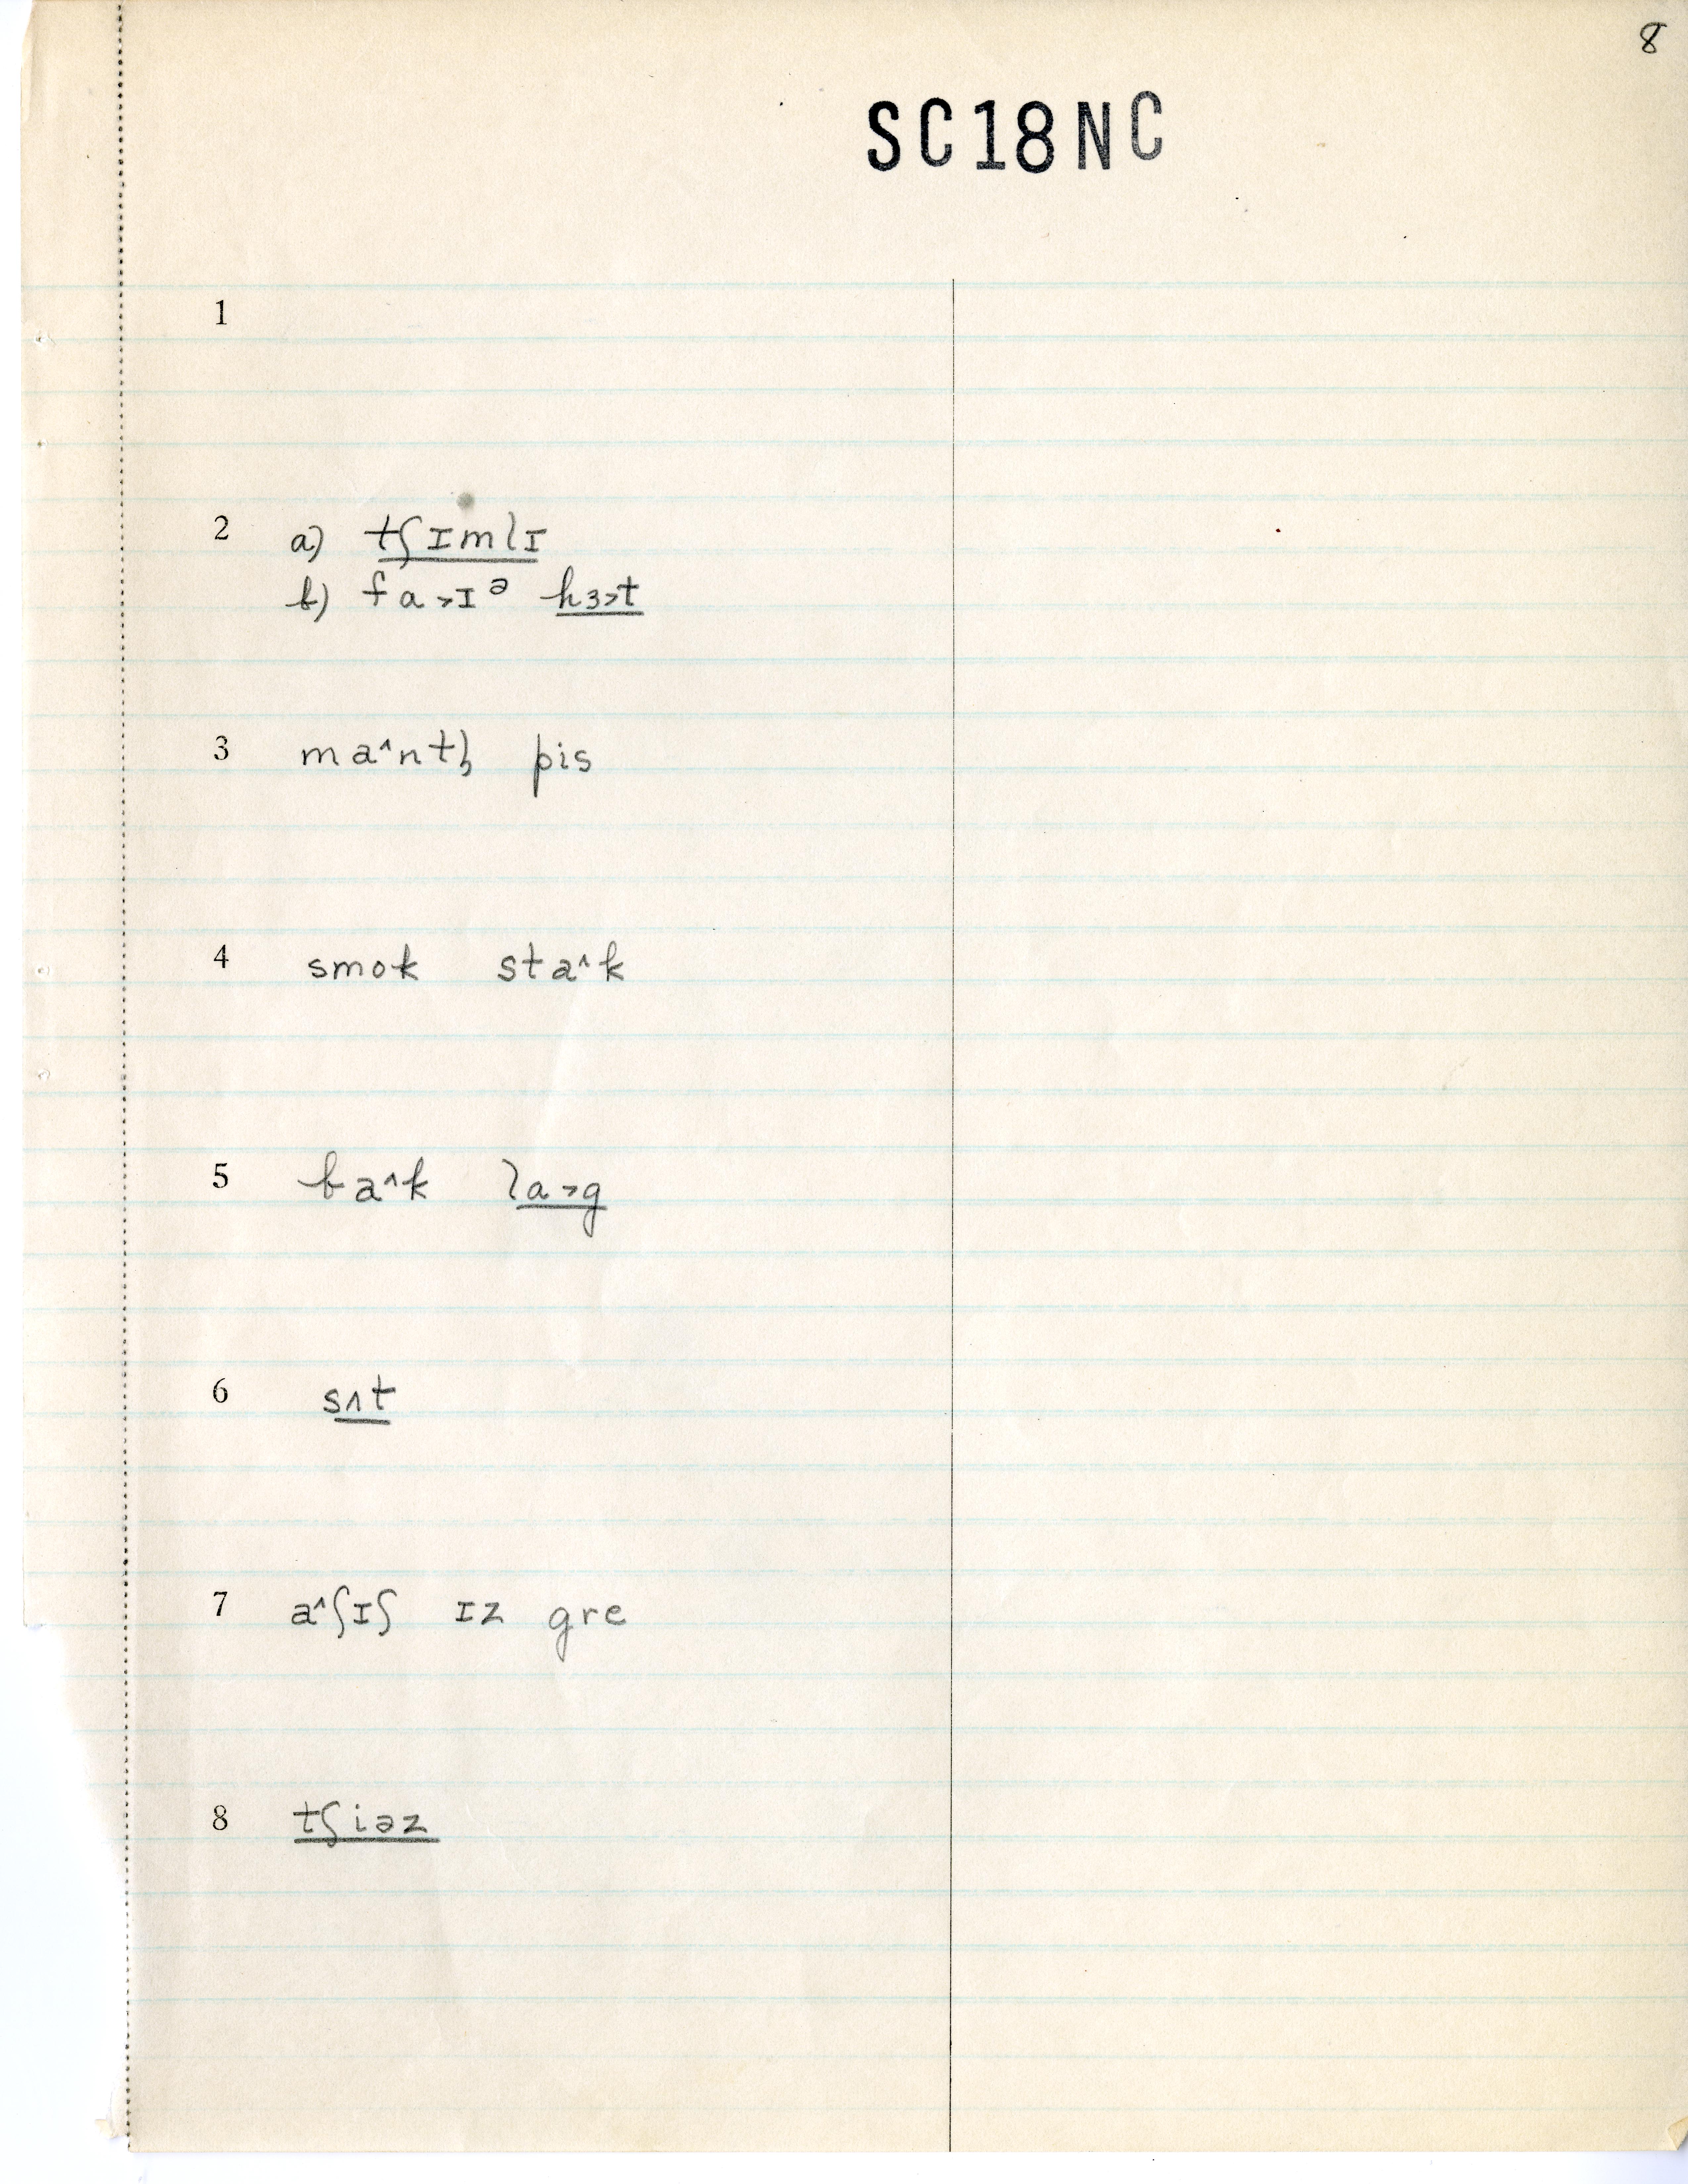 8
SC18NC
1
2 a) tʃɪmlɪ
b) fa˃ɪᵊ hɜ˃t
3 ma^ntl̩ pis
4 smok sta^k
5 ba^k la˃g
6 sʌt
7 a^ʃɪʃ ɪz gre
8 tʃiəz